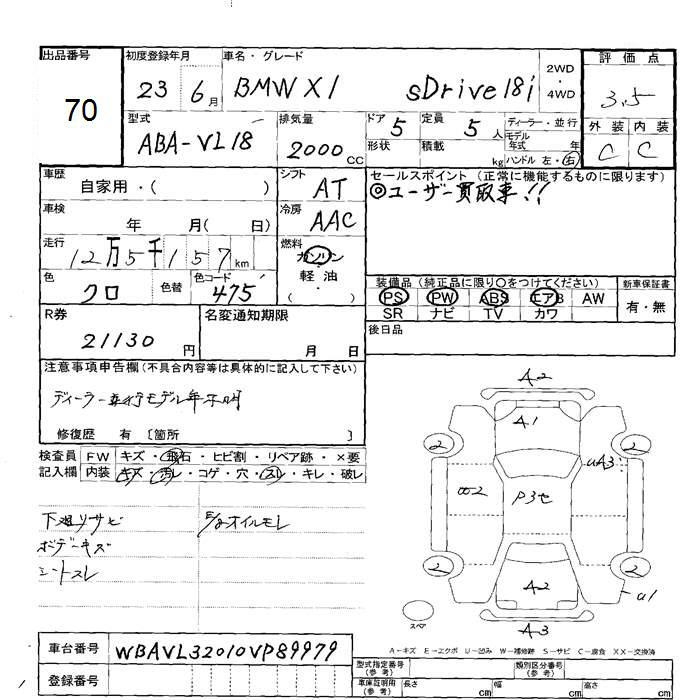 出品番号 初度登録年月 車名・グレード 評価点
70 23 6月 BMW X1 sDrive18i 2WD・4WD 3.5
型式 排気量 ドア 5 定員 5人 ディーラー・並行 外装 内装
ABA-VL18 2000cc 形状 積載 kg モデル年式 年 C C
ハンドル 左・右
車歴 シフト セールスポイント(正常に機能するものに限ります)
自家用・( ) AT ◎ユーザー買取車!!
車検 冷房
年 月( 日) AAC
走行 燃料
12万5千157km ガソリン・軽油
( )
色 色替 色コード 装備品(純正品に限り○をつけてください) 新車保証書
クロ 475 PS PW ABS エアB AW 有・無
SR ナビ TV カワ
R券 名変通知期限 後日品
21130円 月 日
注意事項申告欄(不具合内容等は具体的に記入して下さい)
ディーラー並行モデル年不明
修復歴 有 〔箇所 〕
検査員 FW キズ・飛石・ヒビ割・リペア跡・×要
記入欄 内装 キズ・汚レ・コゲ・穴・スレ・キレ・破レ
下廻りサビ E/gオイルモレ
ボデーキズ
シートスレ
A2
A1
2 2
uA3
P3セ
2 2
A2
u1
A3
スペア
A-キズ E-エクボ U-凹み W-補修跡 S-サビ C-腐食 XX-交換済
車台番号 WBAVL32010VP89979
型式指定番号(参考) 類別区分番号(参考)
登録番号 車庫証明用(参考) 長さ cm 幅 cm 高さ cm